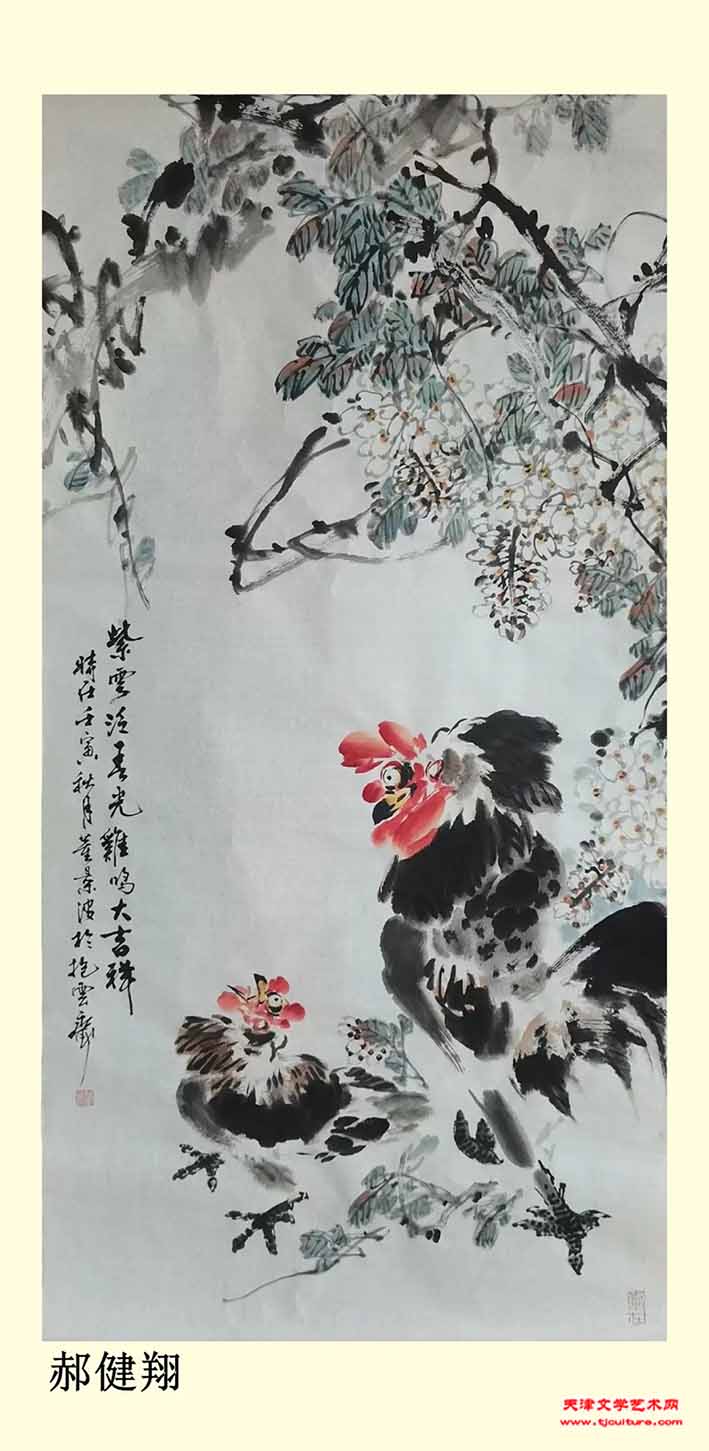 紫雲泛春光雞鳴大吉祥
時在壬寅秋月董景波於抱雲齋
郝健翔
天津文学艺术网
www.tjculture.com